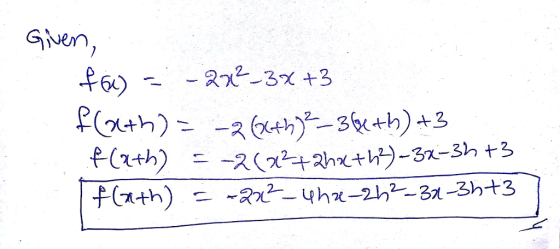 Given,
f(x) = -2x²-3x+3
f(x+h) = -2(x+h)²-3(x+h)+3
f(x+h) = -2(x²+2hx+h²)-3x-3h+3
f(x+h) = -2x²-4hx-2h²-3x-3h+3